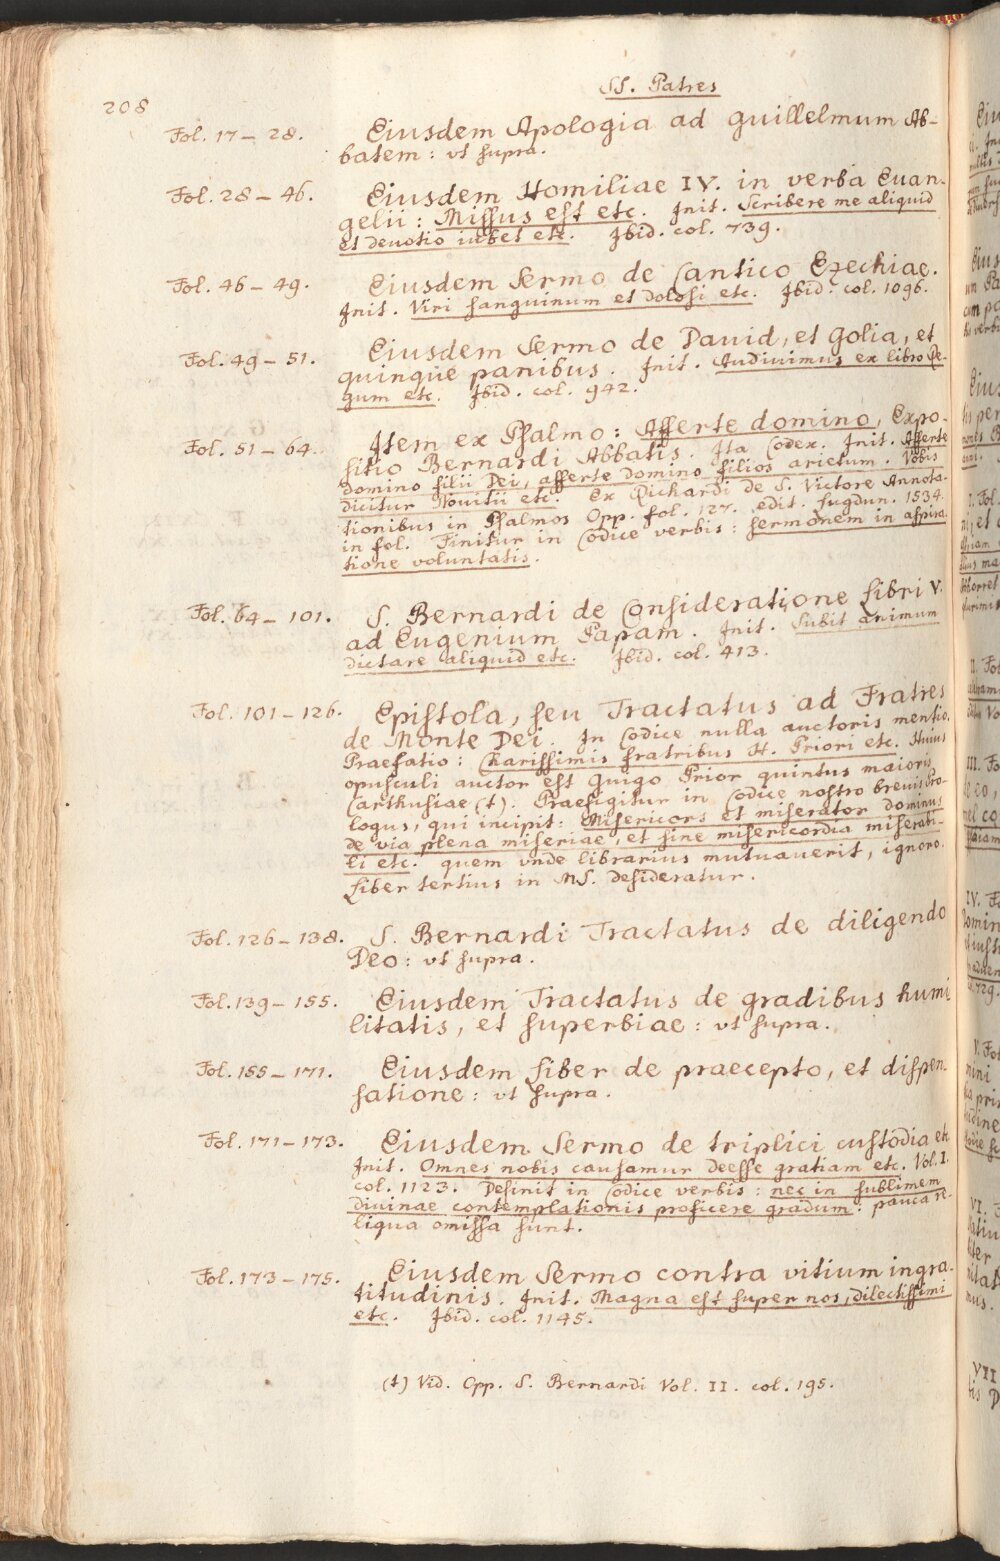 SS. Patres
208
Fol. 17 – 28. Eiusdem Apologia ad Guillelmum Ab-
batem: vt supra.
Fol. 28 – 46. Eiusdem Homiliae IV. in verba Euan-
gelii: Missus est etc. Init. Scribere me aliquid
et deuotio iubet etc. Ibid. col. 739.
Fol. 46 – 49. Eiusdem Sermo de Cantico Ezechiae.
Init. Viri sanguinum et dolosi etc. Ibid. col. 1096.
Fol. 49 – 51. Eiusdem Sermo de Dauid, et Golia, et
quinque panibus. Init. Audiuimus ex libro Re-
gum etc. Ibid. col. 942.
Fol. 51 – 64. Item ex Psalmo: Afferte domino, Expo-
sitio Bernardi Abbatis. Ita Codex. Init. Afferte
domino filii Dei, afferte domino filios arietum. Vobis
dicitur Nouitii etc. Ex Richardi de S. Victore Annota-
tionibus in Psalmos Opp. fol. 127. edit. Lugdun. 1534.
in fol. Finitur in Codice verbis: sermonem in aspira-
tione voluntatis.
Fol. 64 – 101. S. Bernardi de Consideratione Libri V.
ad Eugenium Papam. Init. Subit animum
dictare aliquid etc. Ibid. col. 413.
Fol. 101 – 126. Epistola, seu Tractatus ad Fratres
de Monte Dei. In Codice nulla auctoris mentio.
Praefatio: Charissimis fratribus H. Priori etc. Huius
opusculi auctor est Guigo Prior quintus maioris
Carthusiae (†). Praefigitur in Codice nostro breuis Pro-
logus, qui incipit: Misericors et miserator dominus
de via plena miseriae, et sine misericordia miserabi-
li etc. quem vnde librarius mutuauerit, ignoro.
Liber tertius in MS. desideratur.
Fol. 126 – 138. S. Bernardi Tractatus de diligendo
Deo: vt supra.
Fol. 139 – 155. Eiusdem Tractatus de gradibus humi-
litatis, et superbiae: vt supra.
Fol. 155 – 171. Eiusdem Liber de praecepto, et dispen-
satione: vt supra.
Fol. 171 – 173. Eiusdem Sermo de triplici custodia etc.
Init. Omnes nobis causamur deesse gratiam etc. Vol. I.
col. 1123. Definit in Codice verbis: nec in sublimem
diuinae contemplationis proficere gradum: pauca re-
liqua omissa sunt.
Fol. 173 – 175. Eiusdem Sermo contra vitium ingra-
titudinis. Init. Magna est super nos, dilectissimi
etc. Ibid. col. 1145.
(†) Vid. Opp. S. Bernardi Vol. II. col. 195.